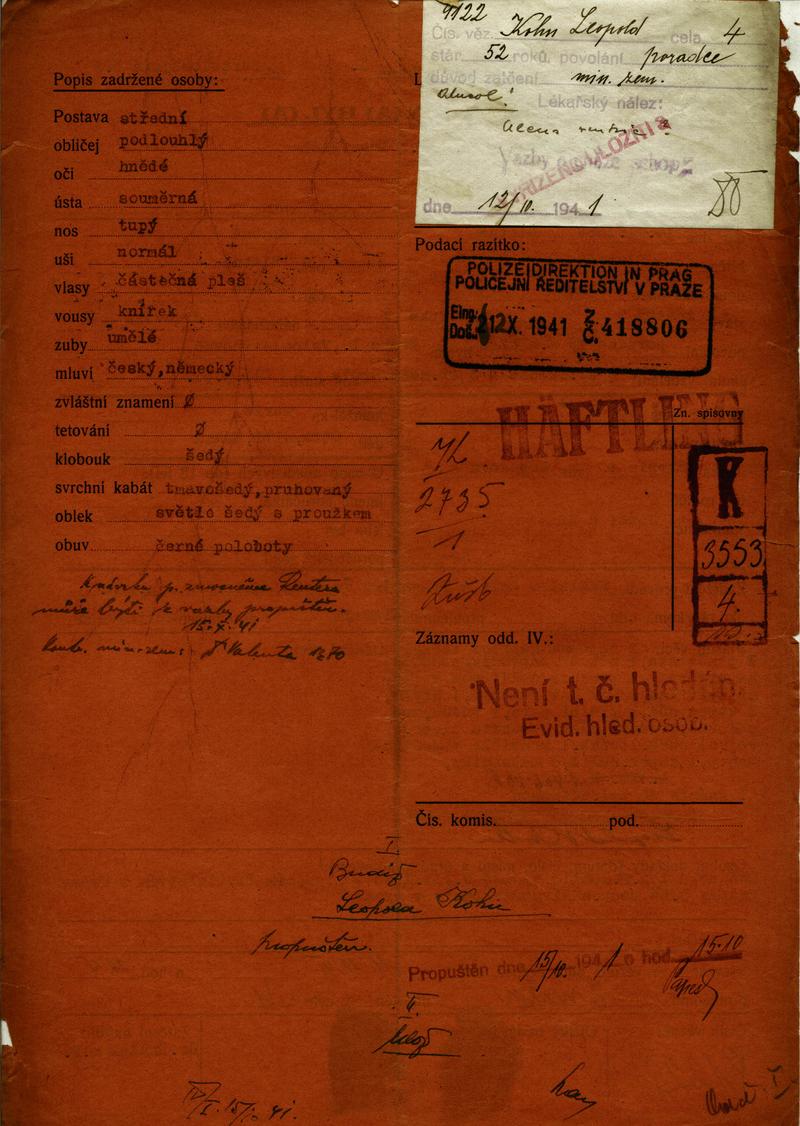 9122 Kohn Leopold
Čís. věz. cela 4
stár 52 roků, povolání poradce
důvod zatčení min. zem.
Lékařský nález:
dne 12/10. 1941
Popis zadržené osoby:
Postava střední
obličej podlouhlý
oči hnědé
ústa souměrná
nos tupý
uši normál
vlasy částečná pleš
vousy knírek
zuby umělé
mluví český,německý
zvláštní znamení ø
tetování ø
klobouk šedý
svrchní kabát tmavošedý,pruhovaný
oblek světle šedý s proužkem
obuv černé poloboty
může býti z vazby propuštěn.
15.X.41
Dr Valenta
Podací razítko:
POLIZEIDIREKTION IN PRAG
POLICEJNÍ ŘEDITELSTVÍ V PRAZE
Eing.
Doš. 12 X. 1941 Z. Č. 418806
HÄFTLING
Zn. spisovny
2735
1
K
3553
4.
Záznamy odd. IV.:
Není t. č. hledán
Evid. hled. osob.
Čís. komis. pod.
I.
Budiž
Leopold Kohn
propuštěn.
Propuštěn dne 15/10. 1941 o hod. 15·10
II.